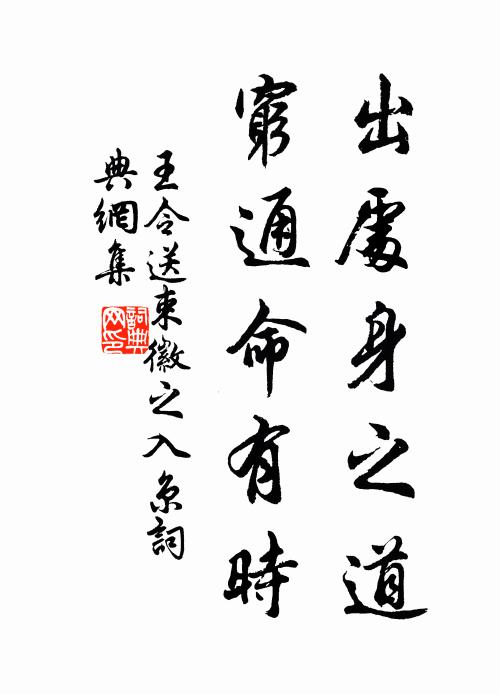 出處身之道
窮通命有時
王令送束徽之入京詞
典網集
詞典网印